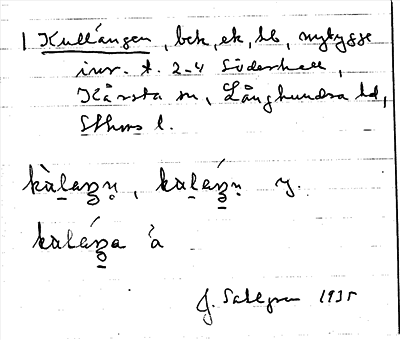 | Kullängen, bck, ek, bb, nybygge
inv. t. 2-4 Söderhall,
Kårsta sn, Långhundra hd,
Sthms l.
kàlaŋn̥, kaláŋn̥ y.
kaláŋa ä
J. Sahlgren 1935